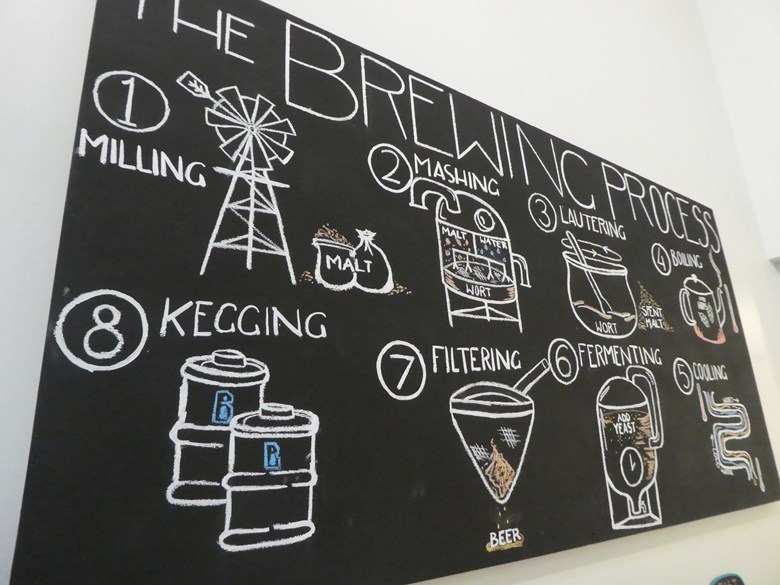 THE BREWING PROCESS
1
MILLING
MALT
2 MASHING
MALT WATER
WORT
3 LAUTERING
WORT
SPENT
MALT
4 BOILING
5 COOLING
6 FERMENTING
ADD
YEAST
7 FILTERING
BEER
8 KEGGING
B
B